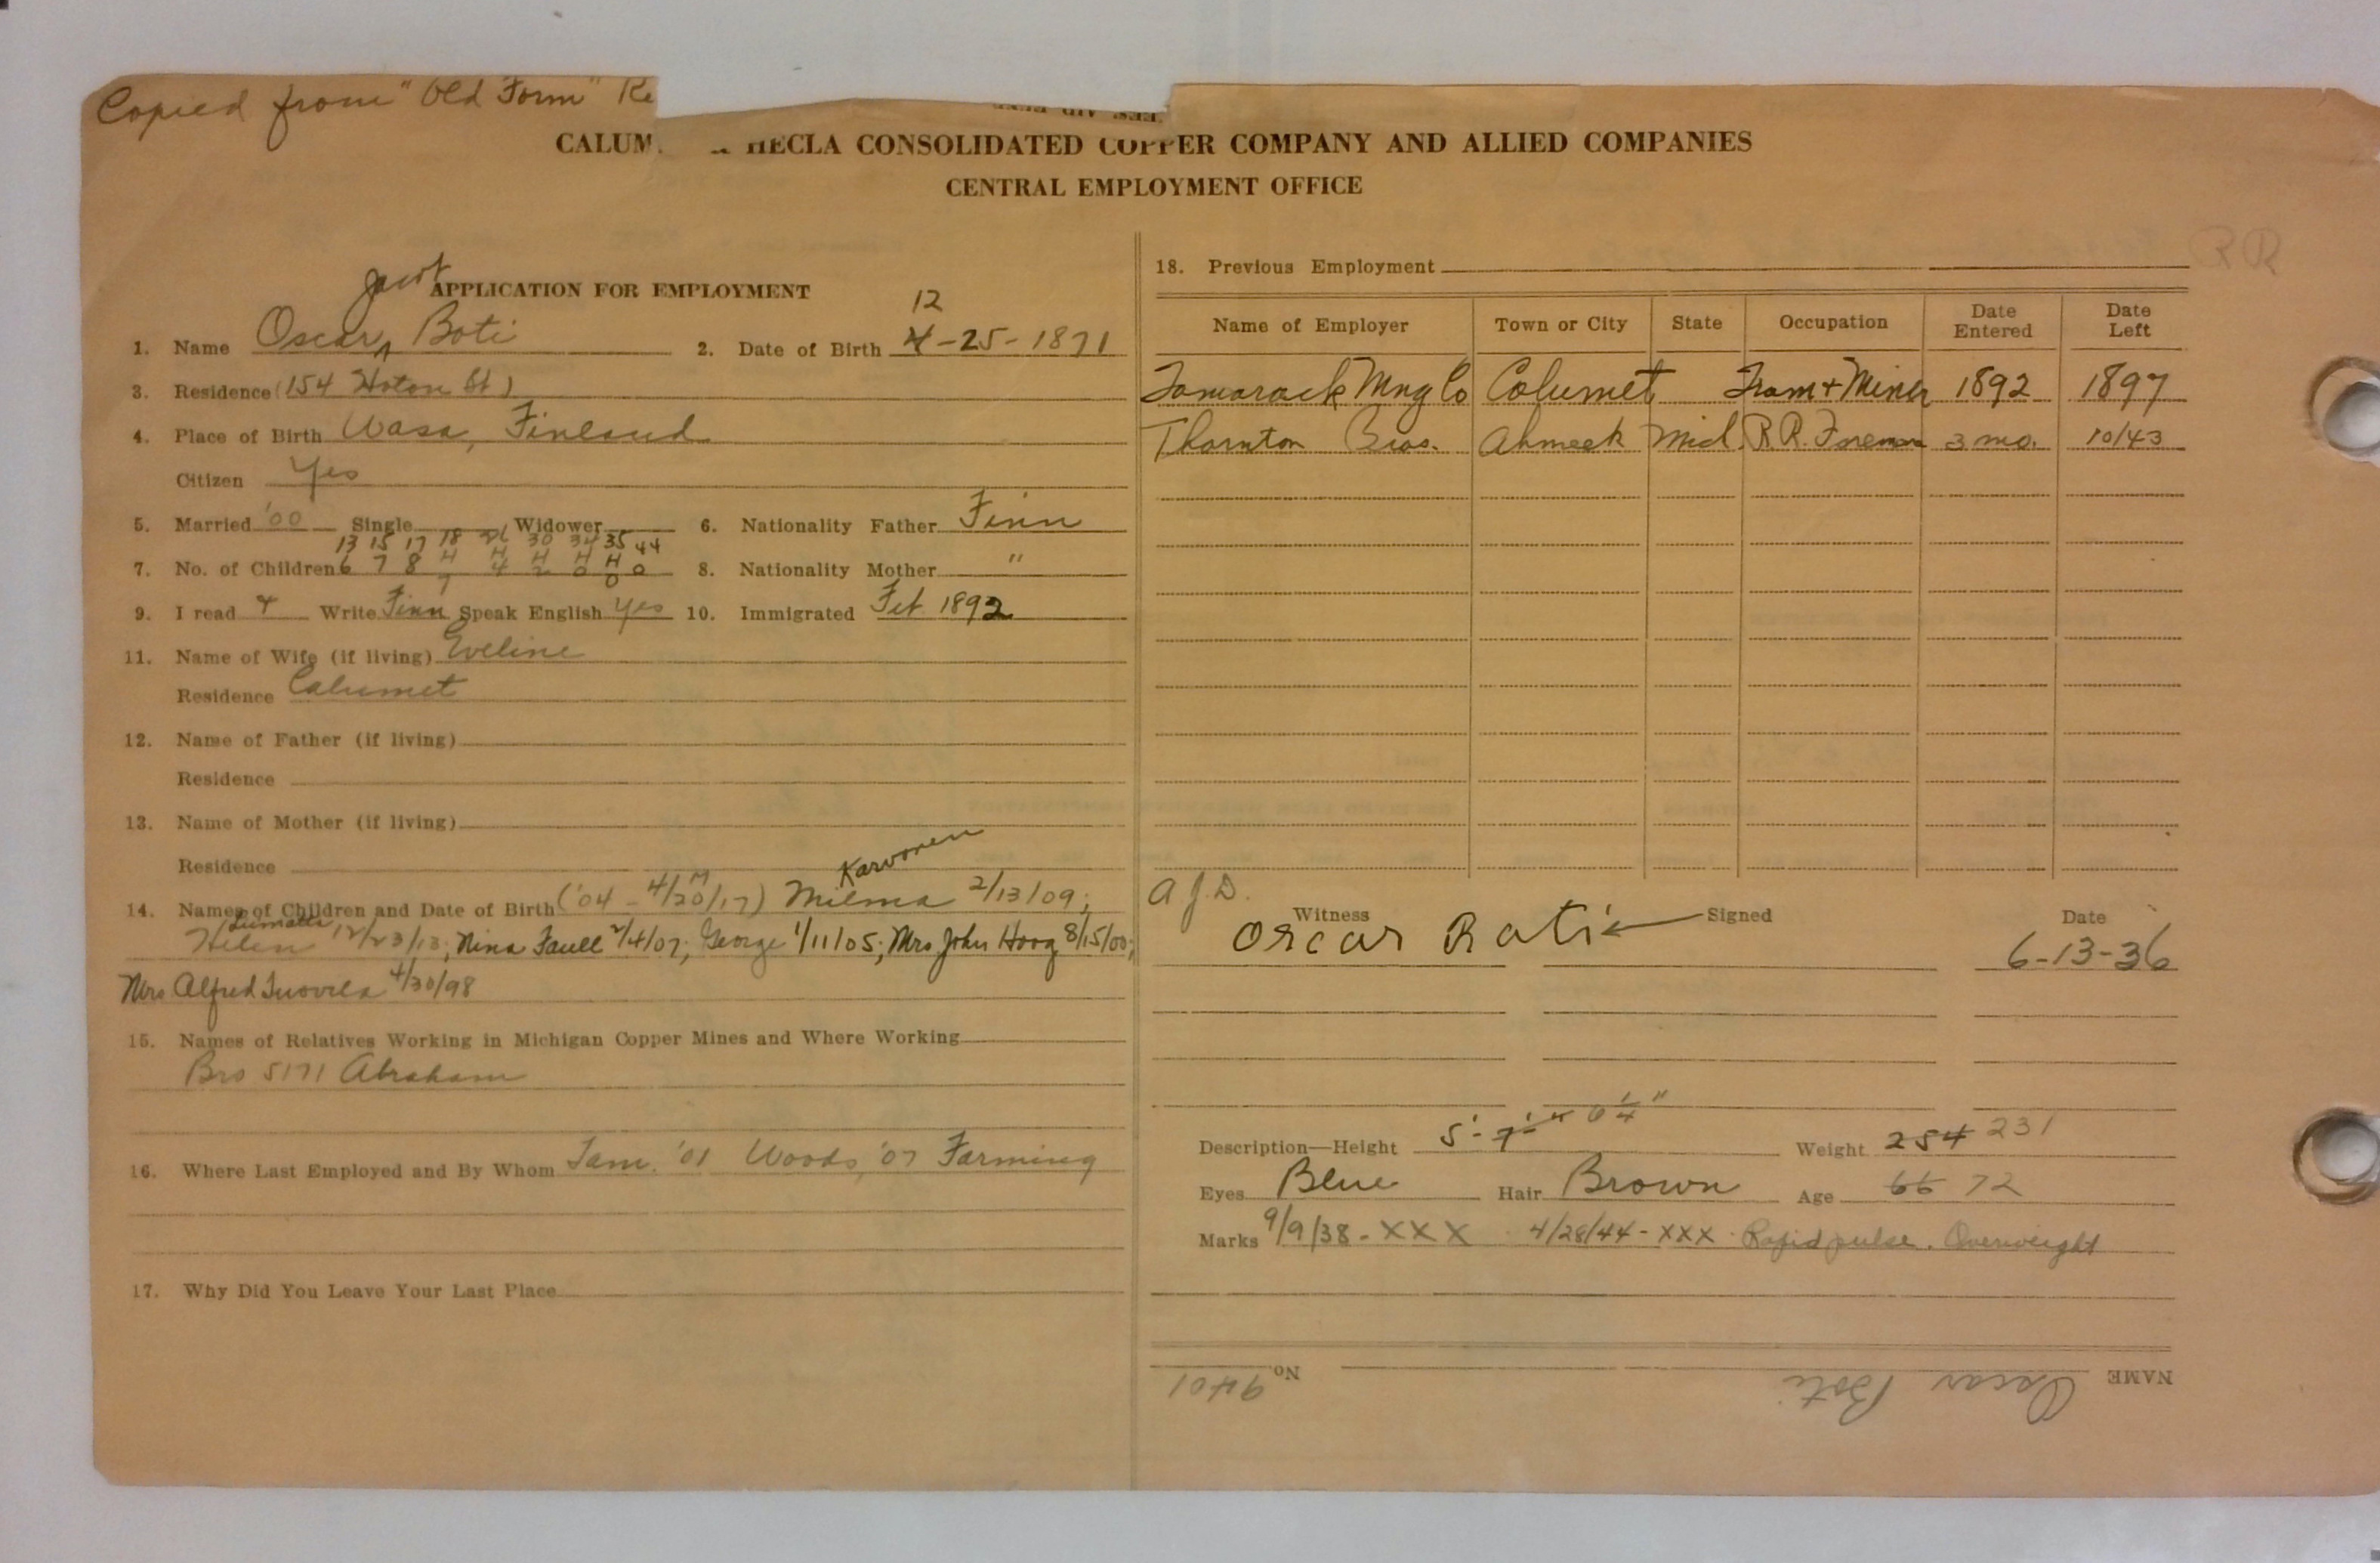 Copied from "Old Form" Re
CALUM HECLA CONSOLIDATED COPPER COMPANY AND ALLIED COMPANIES
CENTRAL EMPLOYMENT OFFICE
APPLICATION FOR EMPLOYMENT
12
1. Name Oscar Boti 2. Date of Birth 4-25-1871
3. Residence (154 Hoton St)
4. Place of Birth Wasa, Finland
Citizen Yes
5. Married '00 Single Widower 6. Nationality Father Finn
13 15 17 18 30 34 35 44
7. No. of Children 6 7 8 8. Nationality Mother "
9. I read Write Finn Speak English yes 10. Immigrated Feb 1892
11. Name of Wife (if living) Eveline
Residence Calumet
12. Name of Father (if living)
Residence
13. Name of Mother (if living)
Residence
Karvonen
14. Names of Children and Date of Birth ('04 - 4/20/17) Milma 2/13/09;
Helen 12/23/13; Nina Faull 2/4/07; George 1/11/05; Mrs John Hoog 8/15/00;
Mrs Alfred 4/30/98
15. Names of Relatives Working in Michigan Copper Mines and Where Working
Bro 5171 Abraham
16. Where Last Employed and By Whom Tam. '01 Woods, '07 Farming
17. Why Did You Leave Your Last Place
RR
18. Previous Employment
Name of Employer Town or City State Occupation Date Entered Date Left
Tamarack Mng Co Calumet Tram + Miner 1892 1897
Thornton Bros. Ahmeek Mich R.R. Foreman 3 mo. 10/43
A J D.
Witness Signed Date
Oscar Rati 6-13-36
Description—Height 5'-7" 6 1/4" Weight 254 231
Eyes Blue Hair Brown Age 66 72
Marks 9/9/38 - XXX 4/28/44 - XXX Rapid pulse. Overweight
NAME Oscar Boti No. 9401